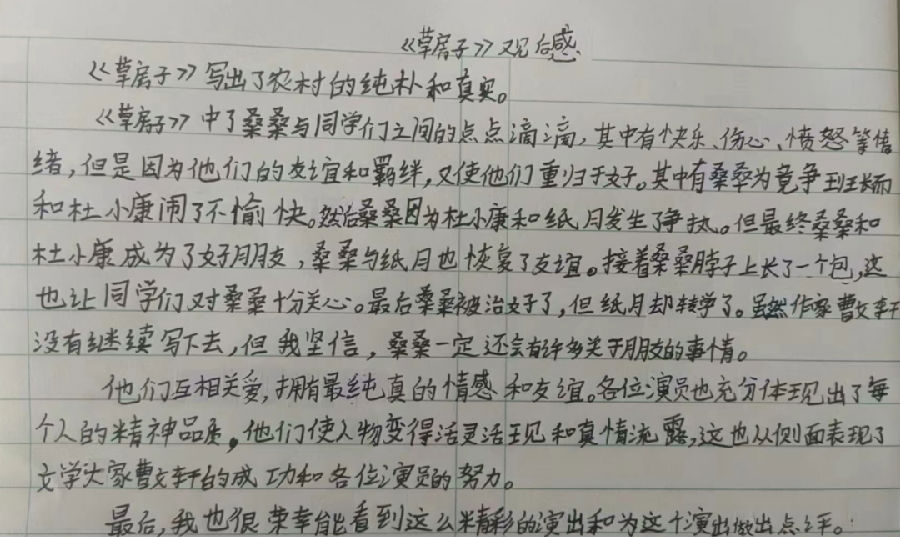 《草房子》观后感
《草房子》写出了农村的纯朴和真实。
《草房子》中了桑桑与同学们之间的点点滴滴,其中有快乐、伤心、愤怒等情
绪,但是因为他们的友谊和羁绊,又使他们重归于好。其中有桑桑为竞争到班长而
和杜小康闹了不愉快。然后桑桑因为杜小康和纸月发生了争执。但最终桑桑和
杜小康成为了好朋友,桑桑与纸月也恢复了友谊。接着桑桑脖子上长了一个包,这
也让同学们对桑桑十分关心。最后桑桑被治好了,但纸月却转学了。虽然作家曹文轩
没有继续写下去,但我坚信,桑桑一定还会有许多关于朋友的事情。
他们互相关爱,拥有最纯真的情感和友谊。各位演员也充分体现出了每
个人的精神品质。他们使人物变得活灵活现和真情流露,这也从侧面表现了
文学大家曹文轩的成功和各位演员的努力。
最后,我也很荣幸能看到这么精彩的演出和为这个演出做出点评。